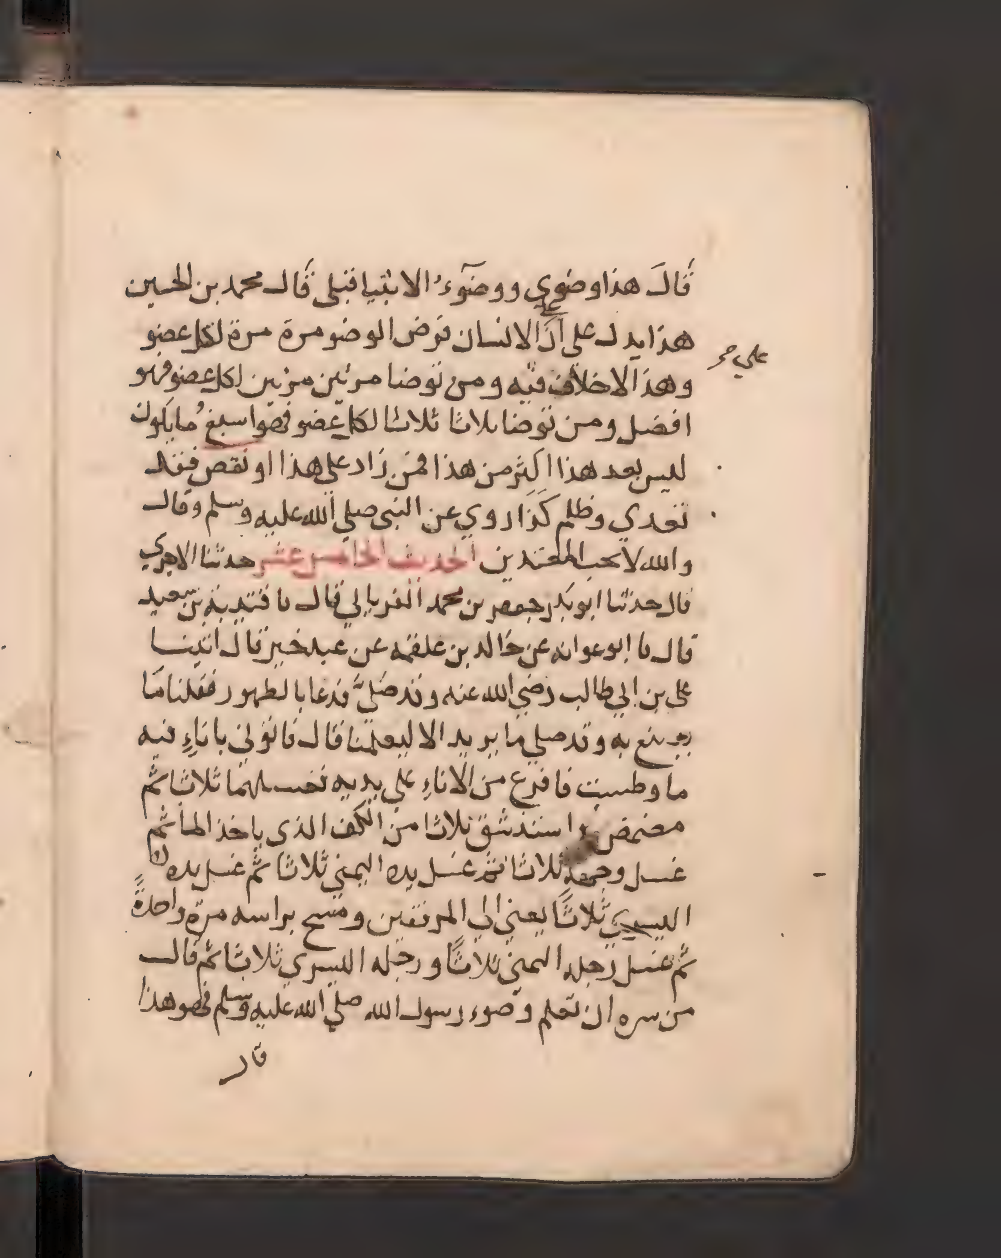 قال هذا وضوي ووضوء الانبيا قبلي قال محمد بن الحسين
هذا يدل على ان الانسان فرض الوضو مرة مرة لكل عضو
علي
وهذا لا خلاف فيه ومن توضا مرتين مرتين لكل عضو فهو
افضل ومن توضا ثلاثا ثلاثا لكل عضو فهو اسبغ ما يكون
ليس بعد هذا اكثر من هذا فمن زاد على هذا او نقص فقد
تعدي وظلم كذا روي عن النبي صلي الله عليه وسلم وقال
والله لا يحب المعتدين الحديث الخامس عشر حدثنا الاجري
قال حدثنا ابو بكر جعفر بن محمد الفريابي قال نا قتيبة بن سعيد
قال نا ابو عوانه عن خالد بن علقمه عن عبد خير قال اتينا
علي بن ابي طالب رضي الله عنه وقد صلي فدعا بالطهور فقلنا ما
يصنع به وقد صلي ما يريد الا ليعلمنا قال فاتوني باناء فيه
ما وطست فافرغ من الاناء علي يديه فغسلهما ثلاثا ثم
مضمض واستنشق ثلاثا من الكف الذي ياخذ الما ثم
غسل وجهه ثلاثا ثم غسل يده اليمني ثلاثا ثم غسل يده
اليسري ثلاثا يعني الي المرفقين ومسح براسه مرة واحدة
ثم غسل رجله اليمني ثلاثا ورجله اليسري ثلاثا ثم قال
من سره ان تعلم وضوء رسول الله صلي الله عليه وسلم فهو هذا
قال